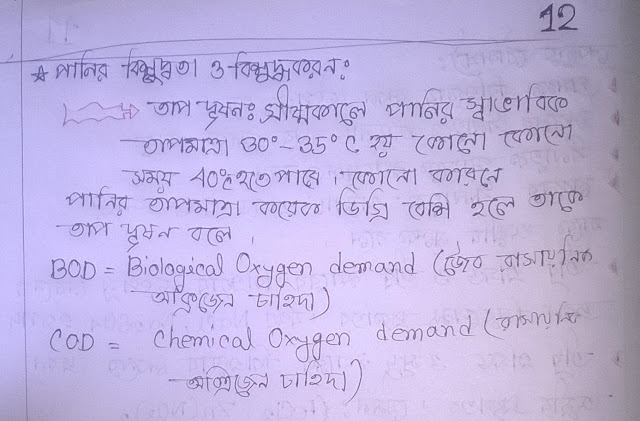 12
* পানির বিশুদ্ধতা ও বিশুদ্ধকরন:
তাপ দূষন: গ্রীষ্মকালে পানির স্বাভাবিক
তাপমাত্রা 30°-35°C হয় কোনো কোনো
সময় 40°C হতে পারে। কোনো কারনে
পানির তাপমাত্রা কয়েক ডিগ্রি বেশি হলে তাকে
তাপ দূষন বলে।
BOD = Biological Oxygen demand (জৈব রাসায়নিক
অক্সিজেন চাহিদা)
COD = Chemical Oxygen demand (রাসায়নিক
অক্সিজেন চাহিদা)